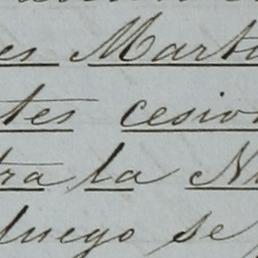 es Mart
tes cesio
tra la N
luego se